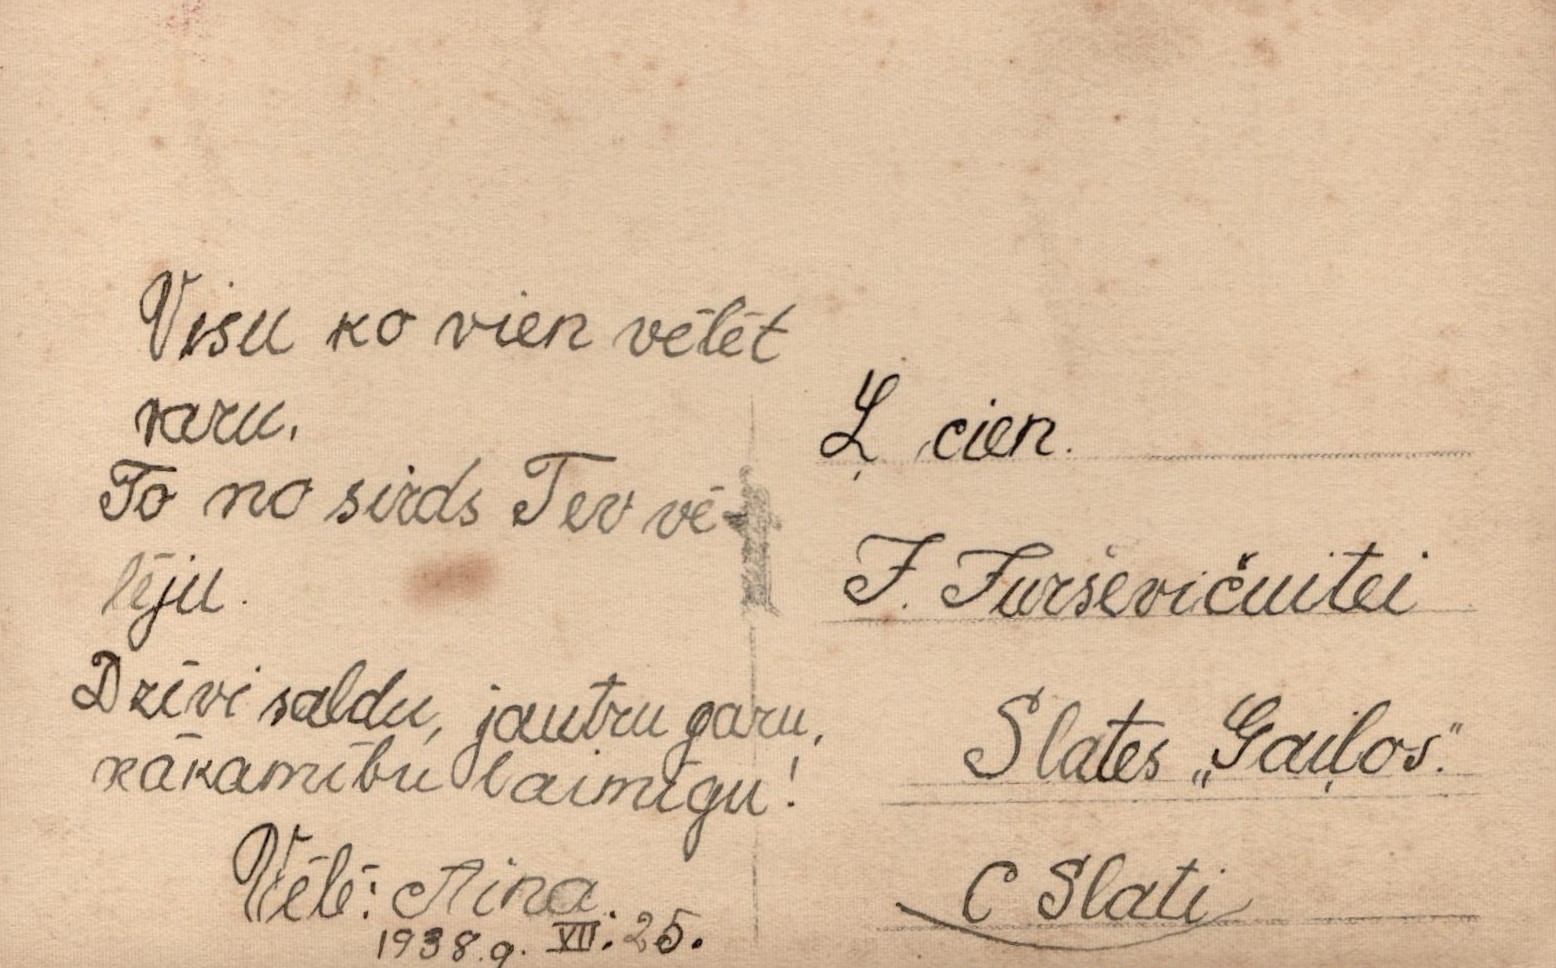 Visu ko vien vēlēt
varu,
To no sirds Tev vē-
lēju.
Dzīvi saldu, jautru garu,
nākamību laimīgu!
Vēlē: Aina
1938.g. VII. 25.
Ļ cien.
F. Furševičuitei
Slates „Gaiļos."
C Slati